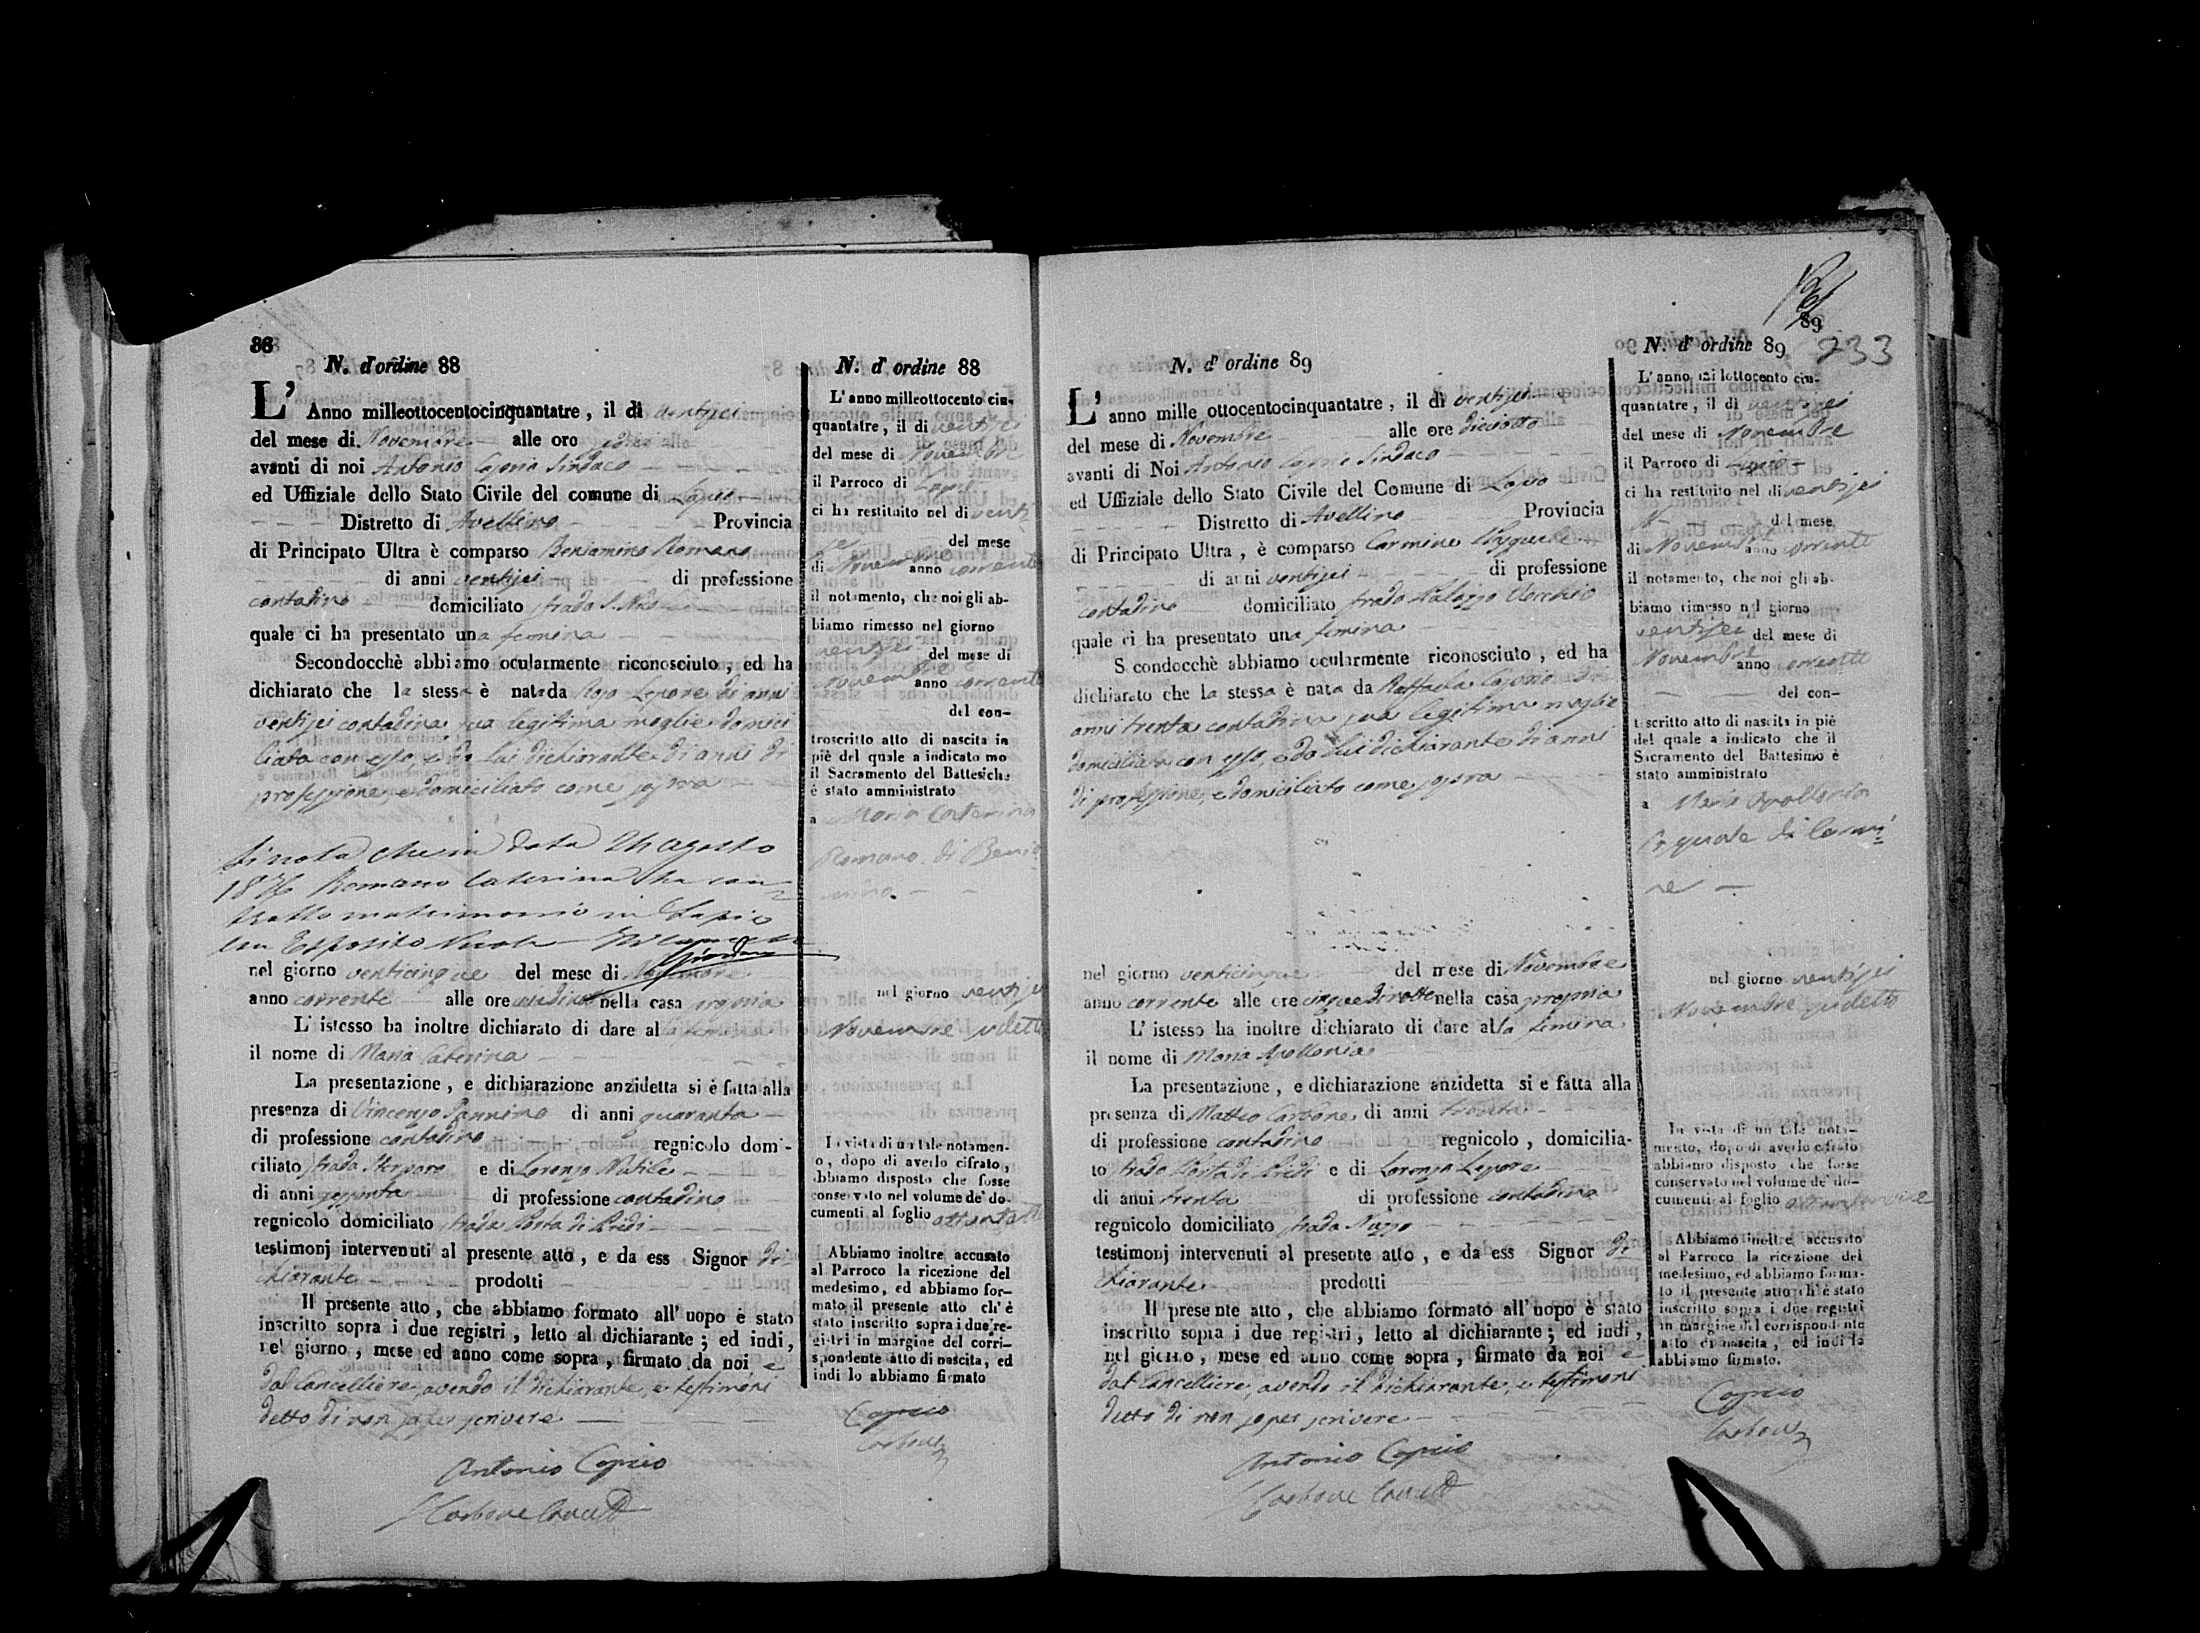 88
N. d'ordine 88
L' Anno milleottocentocinquantatre, il di ventisei
del mese di Novembre alle ore
avanti di noi Antonio Caprio Sindaco
ed Uffiziale dello Stato Civile del comune di Lapio
Distretto di Avellino Provincia
di Principato Ultra è comparso Beniamino Romano
di anni ventisei di professione
contadino domiciliato strada S. Nico
quale ci ha presentato una femina
Secondocchè abbiamo ocularmente riconosciuto, ed ha
dichiarato che la stessa è nata da Rosa Lepore di anni
ventisei contadina sua legitima moglie domici
liata con esso, e da lui dichiarante di anni di
professione, e domiciliato come sopra
Si nota che in data 24 agosto
1876 Romano Caterina ha con=
tratto matrimonio in Lapio
con Esposito Nicola
nel giorno venticinque del mese di Novembre
anno corrente alle ore nella casa propria
L' istesso ha inoltre dichiarato di dare alla femina
il nome di Maria Caterina
La presentazione, e dichiarazione anzidetta si è fatta alla
presenza di Vincenzo Pannino di anni quaranta
di professione contadino regnicolo domi-
ciliato strada e di Lorenzo Natile
di anni sessanta di professione contadino
regnicolo domiciliato strada Porta di Piedi
testimonj intervenuti al presente atto, e da ess Signor di
chiarante prodotti
Il presente atto, che abbiamo formato all' uopo è stato
inscritto sopra i due registri, letto al dichiarante; ed indi,
nel giorno, mese ed anno come sopra, firmato da noi e
dal Cancelliere, avendo il dichiarante, e testimoni
detto di non saper scrivere
Antonio Caprio
Carbone Cancell
N. d' ordine 88
L' anno milleottocento cin-
quantatre, il di ventisei
del mese di Novembre
il Parroco di Lapio
ci ha restituito nel di venti
sei del mese
di Novembre anno corrente
il notamento, che noi gli ab-
biamo rimesso nel giorno
ventisei del mese di
Novembre anno corrente
del con-
troscritto atto di nascita in
piè del quale a indicato mo
il Sacramento del Battesiche
è stato amministrato
a Maria Caterina
Romano di Benia
mino
nel giorno ventisei
Novembre sudetto
In vista di un tale notamen-
o, dopo di averlo cifrato,
abbiamo disposto che fosse
conservato nel volume de' do-
cumenti al foglio ottantotto
Abbiamo inoltre accusato
al Parroco la ricezione del
medesimo, ed abbiamo for-
mato il presente atto ch' è
stato inscritto sopra i due re-
gistri in margine del corri-
spondente atto di nascita, ed
indi lo abbiamo firmato
Caprio
Carbone
89
N. d' ordine 89
L' anno mille ottocentocinquantatre, il di ventisei
del mese di Novembre alle ore diciotto
avanti di Noi Antonio Caprio Sindaco
ed Uffiziale dello Stato Civile del Comune di Lapio
Distretto di Avellino Provincia
di Principato Ultra, è comparso Carmine
di anni ventisei di professione
contadino domiciliato strada Palazzo Vecchio
quale ci ha presentato una femina
S condocchè abbiamo ocularmente riconosciuto, ed ha
dichiarato che la stessa è nata da Raffaela Caprio di
anni trenta contadina sua legitima moglie
domiciliata con esso, e da lui dichiarante di anni
di professione, e domiciliato come sopra
nel giorno venticinque del mese di Novembre
anno corrente alle ore cinque di notte nella casa propria
L' istesso ha inoltre dichiarato di dare alla femina
il nome di Maria Apollonia
La presentazione, e dichiarazione anzidetta si e fatta alla
presenza di Matteo Carbone di anni trenta
di professione contadino regnicolo, domicilia-
to strada Porta di Piedi e di Lorenzo Lepore
di anni trenta di professione contadino
regnicolo domiciliato strada Nuzzo
testimonj intervenuti al presente atto, e da ess Signor di
chiarante prodotti
Il presente atto, che abbiamo formato all' uopo è stato
inscritto sopra i due registri, letto al dichiarante; ed indi,
nel giorno, mese ed anno come sopra, firmato da noi e
dal Cancelliere, avendo il dichiarante, e testimoni
detto di non saper scrivere
Antonio Caprio
Carbone Cancell
233
N. d' ordine 89
L' anno mi lottocento cin-
quantatre, il di ventisei
del mese di Novembre
il Parroco di Lapio
ci ha restituito nel di ventisei
del mese
di Novembre anno corrente
il notamento, che noi gli ab-
biamo rimesso nel giorno
ventisei del mese di
Novembre anno corrente
del con-
troscritto atto di nascita in piè
del quale a indicato che il
Sacramento del Battesimo è
stato amministrato
a Maria Apollonia
di Carmi
ne
nel giorno ventisei
Novembre sudetto
In vista di un tale nota-
mento, dopo di averlo cifrato
abbiamo disposto che fosse
conservato nel volume de' do-
cumenti al foglio ottantanove
Abbiamo inoltre accusato
al Parroco la ricezione del
medesimo, ed abbiamo forma-
to il presente atto ch' è stato
inscritto sopra i due registri
in margine del corrispondente
atto di nascita, ed indi lo
abbiamo firmato.
Caprio
Carbone